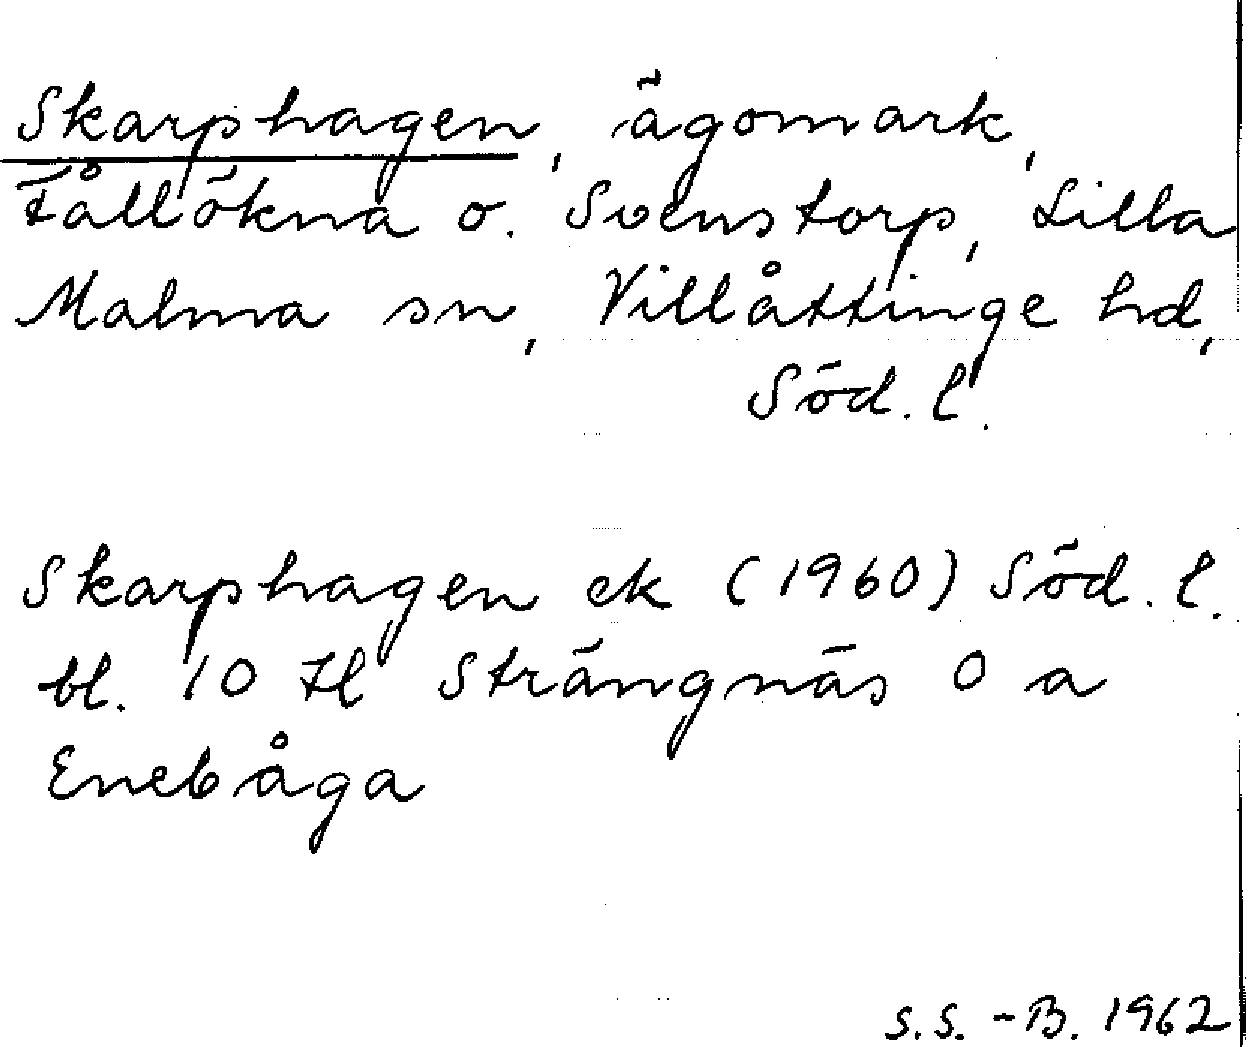 Skarphagen, ägomark,
Fållökna o. Svenstorp, Lilla
Malma sn, Villåttinge hd,
Söd. l.
Skarphagen ek (1960) Söd. l.
bl. 10 tl Strängnäs O a
Enebåga
S.S. -B. 1962